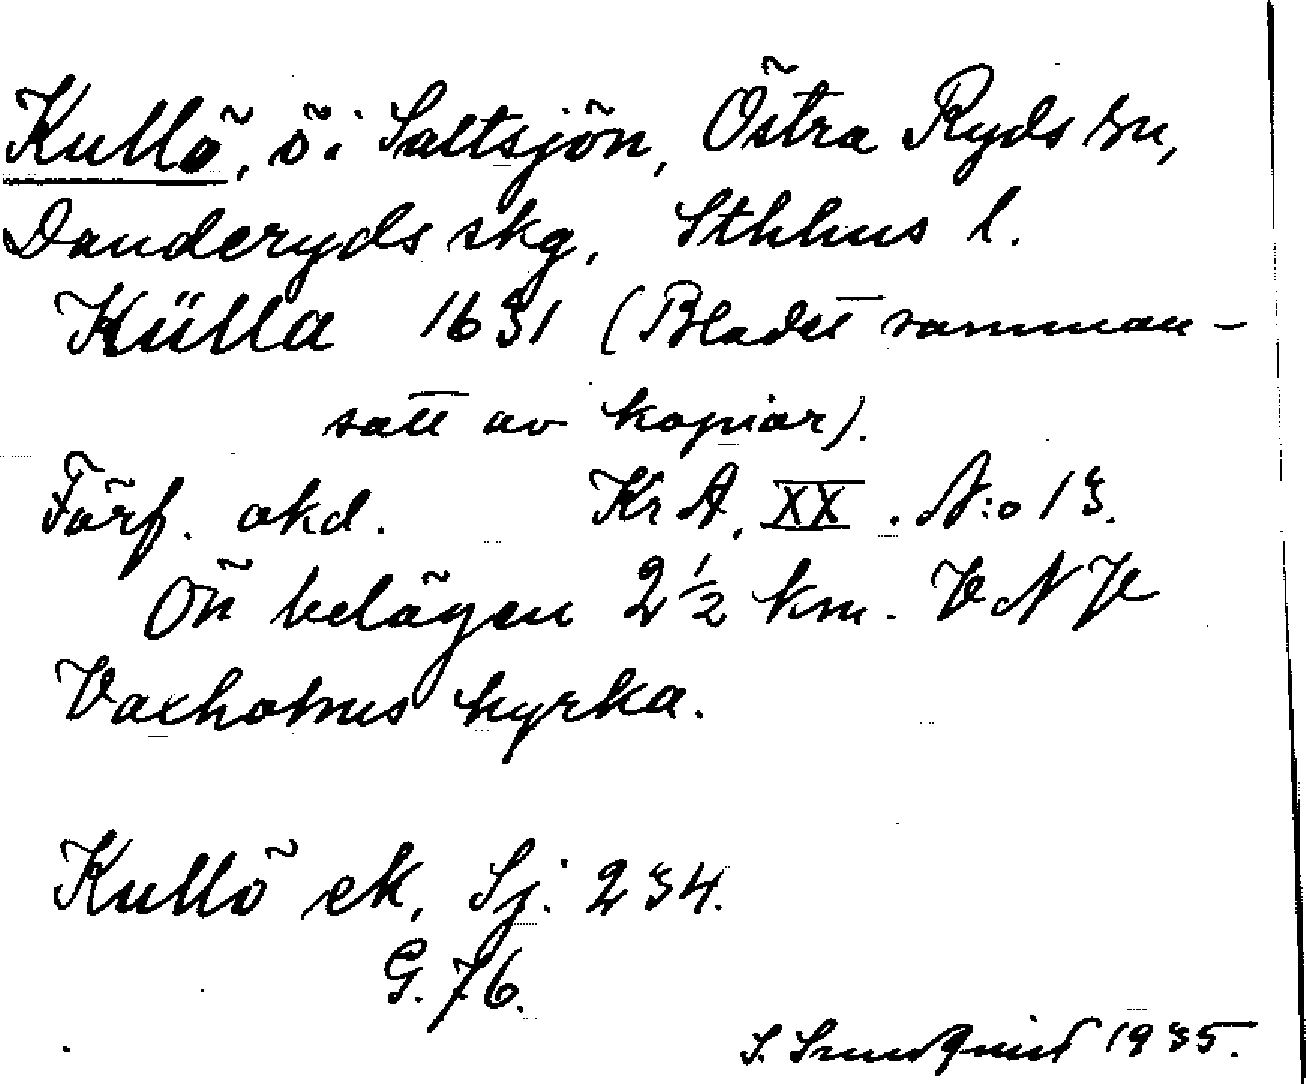 Kullö, ö i Saltsjön, Östra Ryds sn,
Danderyds skg, Sthlms l.
Külla 1631 (Bladet samman-
satt av kopior).
Förf. okd. Kr A, XX. N:o 13.
Ön belägen 2½ km. V N V
Vaxholms kyrka.
Kullö ek, Sj. 234.
G. 76.
S. 1935.